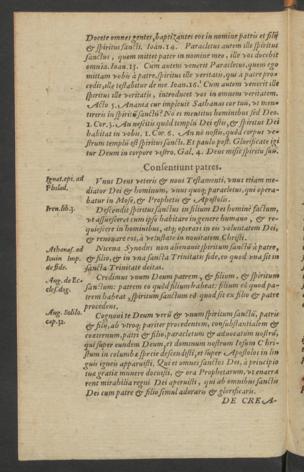 Docete omnes gentes, baptizantes eos in nomine patris et filij
& spiritus sancti. Ioan.14. Paracletus autem ille spiritus
sanctus, quem mittet pater in nomine meo, ille vos docebit
omnia. Ioan.15. Cum autem venerit Paracletus, quem ego
mittam vobis à patre, spiritus ille veritatis, qui a patre pro=
cedit, ille testabitur de me. Ioan.16. Cum autem venerit ille
spiritus ille veritatis, introducet vos in omnem veritatem.
Acto 5. Anania cur impleuit Sathanas cor tuũ, vt men-
tereris in spiritũ sanctũ? Nõ es mentitus hominibus sed Deo.
1 Cor.3. An nescitis quòd templũ Dei estis, & spiritus Dei
habitat in vobis. 1. Cor. 6. An nõ nostis, quòd corpus ve-
strum templũ est spiritus sancti. Et paulo post. Glorificate igi
tur Deum in corpore vestro. Gal. 4. Deus misit spiritũ suũ.
Consentiunt patres.
Ignat.epi. ad
Philad.
Vnus Deus veteris & noui Testamenti, vnus etiam me-
diator Dei & hominum, vnus quoq; paracletus, qui opera-
batur in Mose, & Prophetis & Apostolis.
Iren.lib.3.
Descendit spiritus sanctus in filium Dei hominẽ factum,
vt assuesceret cum ipso habitare in genere humano, & re-
quiescere in hominibus, atq; operari in eis voluntatem Dei,
& renouare eos, à vetustate in nouitatem Christi.
Athanas. ad
Iouin Imp.
de fide.
Nicena Synodus non alienauit spiritum sanctũ à patre,
& filio, & in vna sancta Trinitatis fide, eo quòd vna sit in
sancta Trinitate deitas.
Aug. de Ec-
cles. dog.
Credimus vnum Deum patrem, & filium, & spiritum
sanctum: patrem eo quòd filium habeat: filium eò quod pa-
trem habeat, spiritum sanctum eò quod sit ex filio & patre
procedens.
Aug. Solilo.
cap.32.
Cognoui te Deum verũ & vnum spiritum sanctũ, patris
& filij, ab vtroq; pariter procedentem, consubstantialem &
coæternum, patri & filio, paracletum & aduocatum nostrũ,
qui super eundem Deum, et dominum nostrum Iesum Chri-
stum in columbæ specie descendisti, et super Apostolos in lin
guis igneis apparuisti. Qui et omnes sanctos Dei, à principio
tuæ gratiæ munere docuisti, & ora Prophetarum, vt enarra
rent mirabilia regni Dei aperuisti, qui ab omnibus sanctis
Dei cum patre & filio simul adoraris & glorificaris.
DE CREA-